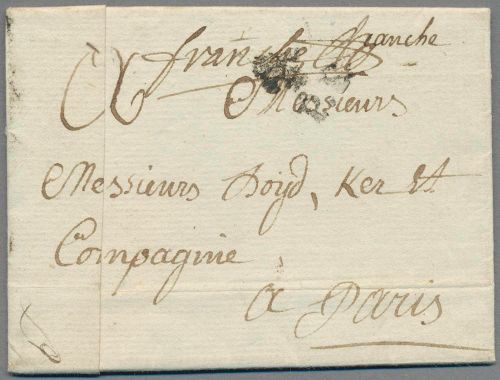 franche franche
Messieurs
Messieurs Boyd, Ker et
Compagnie
a Paris